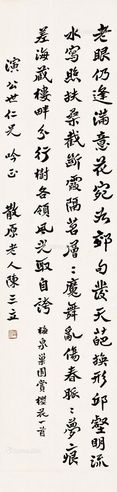 老眼仍逢滿意花宛然鄰句發天葩換形邱壑明流
水寫照扶桑截斷霞隔茗層層魔舞亂傷春脈脈夢痕
差海藏樓畔分行樹各領風光取自誇 梅泉巢園賞櫻花一首
演公世仁兄 吟正 散原老人陳三立